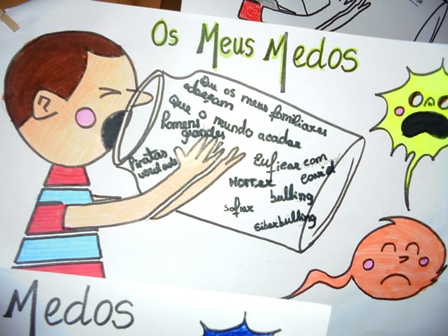 Os Meus Medos
Que os meus familiares
adoeçam
Que o mundo acabe
Homens
grandes
Piratas
Eu ficar com
covid
Morrer
bulling
sofrer
siberbulling
Medos